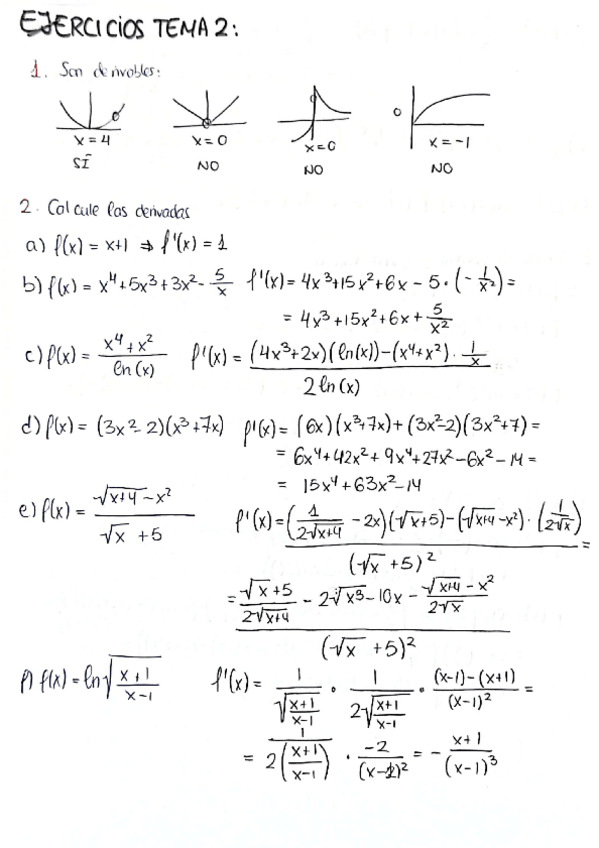 EJERCICIOS TEMA 2:
1. Son derivables:
x=4 x=0 x=0 0 x=-1
SÍ NO NO NO
2. Calcule las derivadas
a) f(x) = x+1 ⇒ f'(x) = 1
b) f(x) = x⁴+5x³+3x²-5/x f'(x) = 4x³+15x²+6x-5·(-1/x²) =
= 4x³+15x²+6x+5/x²
c) f(x) = (x⁴+x²)/ln(x) f'(x) = ((4x³+2x)(ln(x))-(x⁴+x²)·1/x)/(2ln(x))
d) f(x) = (3x²-2)(x³+7x) f'(x) = (6x)(x³+7x)+(3x²-2)(3x²+7) =
= 6x⁴+42x²+9x⁴+27x²-6x²-14 =
= 15x⁴+63x²-14
e) f(x) = (√(x+4)-x²)/(√x+5) f'(x) = ((1/(2√(x+4))-2x)(√x+5)-(√(x+4)-x²)·(1/(2√x)))/(√x+5)² =
= ((√x+5)/(2√(x+4))-2√x³-10x-(√(x+4)-x²)/(2√x))/(√x+5)²
f) f(x) = ln√((x+1)/(x-1)) f'(x) = 1/√((x+1)/(x-1))·1/(2√((x+1)/(x-1)))·((x-1)-(x+1))/(x-1)² =
= 1/(2((x+1)/(x-1)))·-2/(x-1)² = -(x+1)/(x-1)³